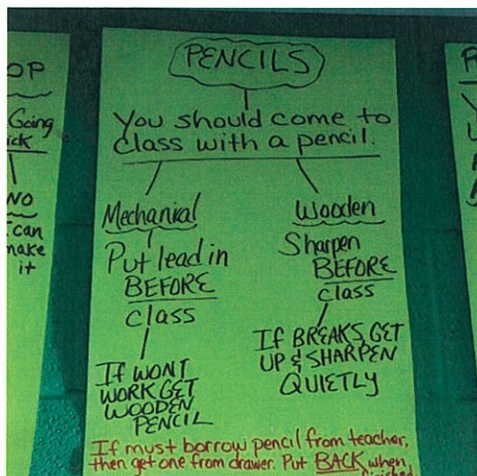 PENCILS
You should come to
class with a pencil.
Mechanical
Put lead in
BEFORE
class
If WONT
WORK GET
WOODEN
PENCIL
Wooden
Sharpen
BEFORE
class
If BREAKS, GET
UP & SHARPEN
QUIETLY
If must borrow pencil from teacher,
then get one from drawer. Put BACK when
OP
Going
NO
I can
make
it